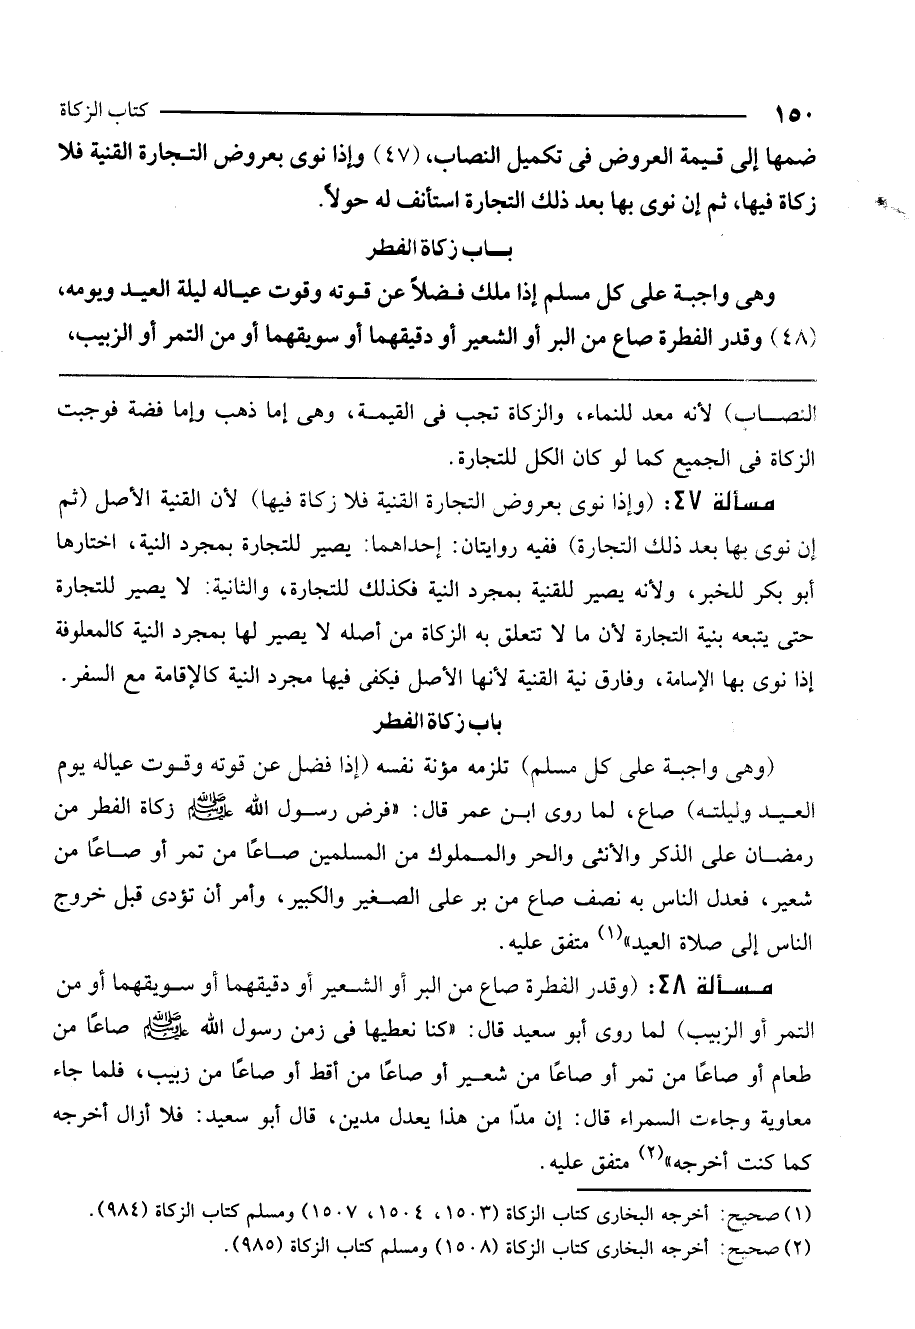 ١٥٠ كتاب الزكاة
ضمها إلى قيمة العروض فى تكميل النصاب، (٤٧) وإذا نوى بعروض التجارة القنية فلا
زكاة فيها، ثم إن نوى بها بعد ذلك التجارة استأنف له حولاً.
باب زكاة الفطر
وهى واجبة على كل مسلم إذا ملك فضلاً عن قوته وقوت عياله ليلة العيد ويومه،
(٤٨) وقدر الفطرة صاع من البر أو الشعير أو دقيقهما أو سويقهما أو من التمر أو الزبيب،
النصاب) لأنه معد للنماء، والزكاة تجب فى القيمة، وهى إما ذهب وإما فضة فوجبت
الزكاة فى الجميع كما لو كان الكل للتجارة.
مسألة ٤٧: (وإذا نوى بعروض التجارة القنية فلا زكاة فيها) لأن القنية الأصل (ثم
إن نوى بها بعد ذلك التجارة) ففيه روايتان: إحداهما: يصير للتجارة بمجرد النية، اختارها
أبو بكر للخبر، ولأنه يصير للقنية بمجرد النية فكذلك للتجارة، والثانية: لا يصير للتجارة
حتى يتبعه بنية التجارة لأن ما لا تتعلق به الزكاة من أصله لا يصير لها بمجرد النية كالمعلوفة
إذا نوى بها الإسامة، وفارق نية القنية لأنها الأصل فيكفى فيها مجرد النية كالإقامة مع السفر.
باب زكاة الفطر
(وهى واجبة على كل مسلم) تلزمه مؤنة نفسه (إذا فضل عن قوته وقوت عياله يوم
العيد وليلته) صاع، لما روى ابن عمر قال: «فرض رسول الله ﷺ زكاة الفطر من
رمضان على الذكر والأنثى والحر والمملوك من المسلمين صاعًا من تمر أو صاعًا من
شعير، فعدل الناس به نصف صاع من بر على الصغير والكبير، وأمر أن تؤدى قبل خروج
الناس إلى صلاة العيد»(١) متفق عليه.
مسألة ٤٨: (وقدر الفطرة صاع من البر أو الشعير أو دقيقهما أو سويقهما أو من
التمر أو الزبيب) لما روى أبو سعيد قال: «كنا نعطيها فى زمن رسول الله ﷺ صاعًا من
طعام أو صاعًا من تمر أو صاعًا من شعير أو صاعًا من أقط أو صاعًا من زبيب، فلما جاء
معاوية وجاءت السمراء قال: إن مدّا من هذا يعدل مدين، قال أبو سعيد: فلا أزال أخرجه
كما كنت أخرجه»(٢) متفق عليه.
(١) صحيح: أخرجه البخارى كتاب الزكاة (١٥٠٣، ١٥٠٤، ١٥٠٧) ومسلم كتاب الزكاة (٩٨٤).
(٢) صحيح: أخرجه البخارى كتاب الزكاة (١٥٠٨) ومسلم كتاب الزكاة (٩٨٥).